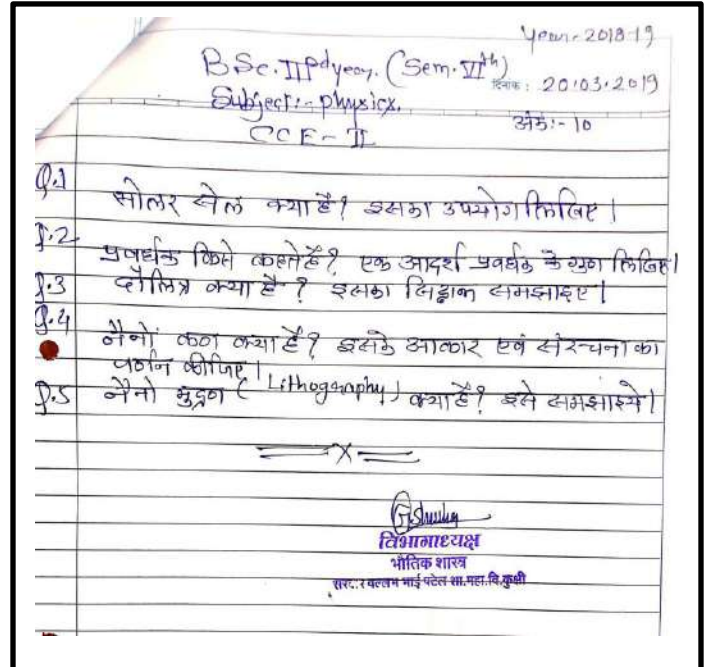 Year-2018-19
B.Sc. IIIrd year. (Sem. VIth)
दिनांक : 20.03.2019
Subject:- physicx.
अंक:- 10
CCE-II
Q.1 सोलर सेल क्या है? इसका उपयोग लिखिए।
Q.2 प्रवर्धक किसे कहते है? एक आदर्श प्रवर्धक के गुण लिखिए।
Q.3 दौलित्र क्या है ? इसका सिद्धान्त समझाइए।
Q.4 नैनों कण क्या है? इसके आकार एवं संरचना का
वर्णन कीजिए।
Q.5 नैनो मुद्रण (Lithography) क्या है? इसे समझाइये।
X
विभागाध्यक्ष
भौतिक शास्त्र
वल्लभ भाई पटेल शा.महा.वि.कुक्षी